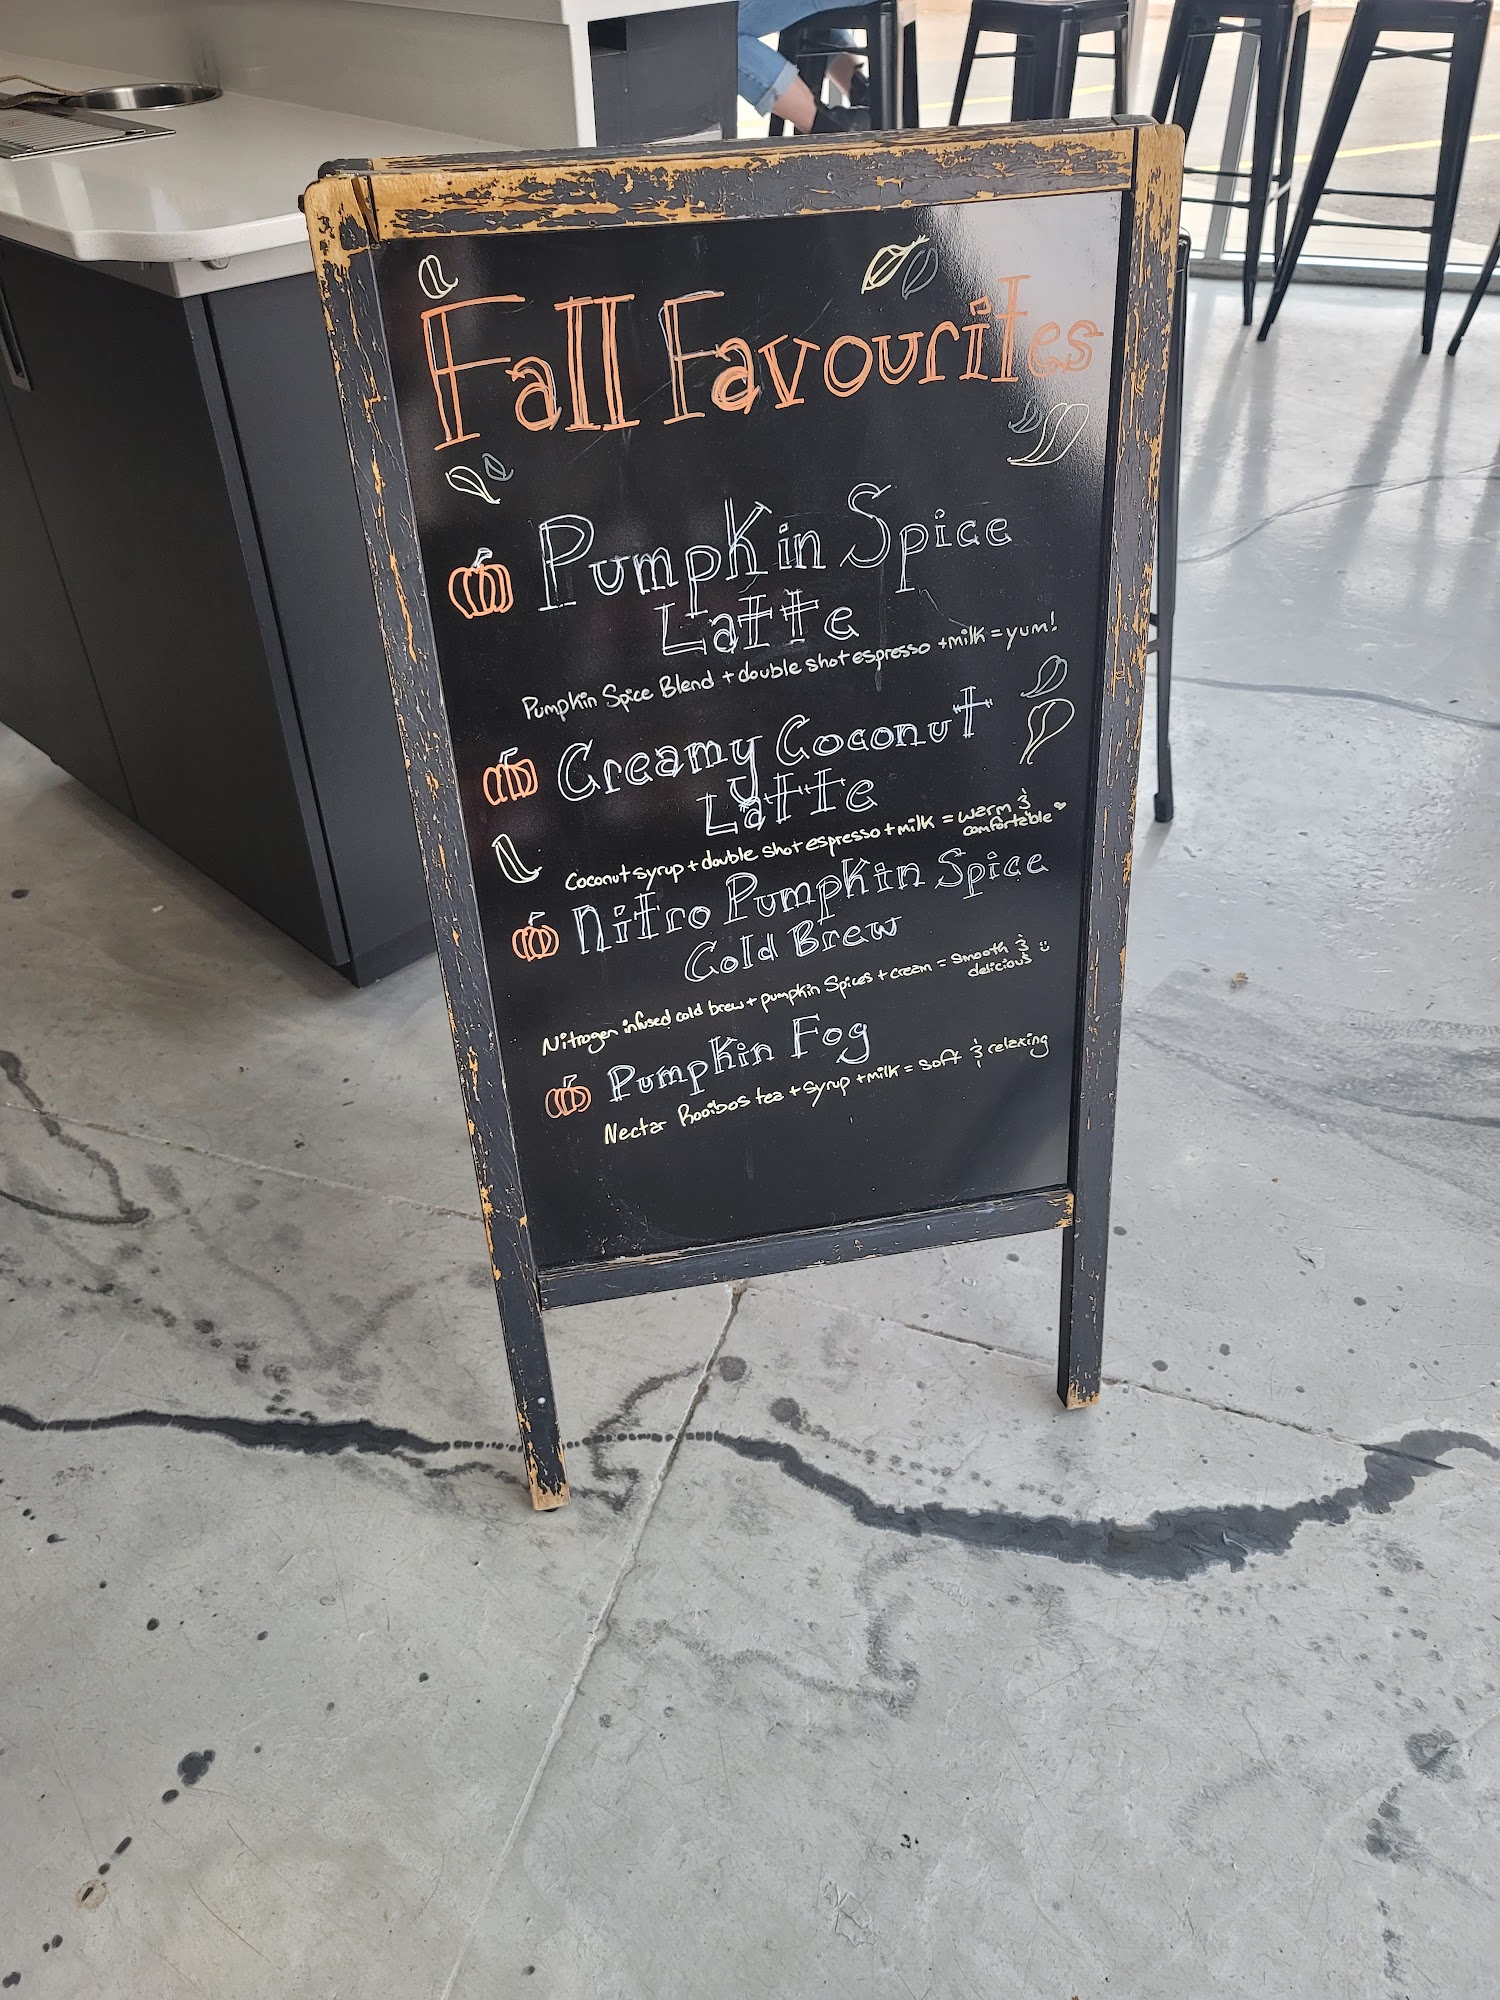 Fall Favourites
Pumpkin Spice
Latte
Pumpkin Spice Blend + double shot espresso + milk = yum!
Creamy Coconut
Latte
Coconut syrup + double shot espresso + milk = warm &
comfortable
Nitro Pumpkin Spice
Cold Brew
Nitrogen infused cold brew + pumpkin Spices + cream = smooth &
delicious
Pumpkin Fog
Nectar Rooibos tea + syrup + milk = soft & relaxing